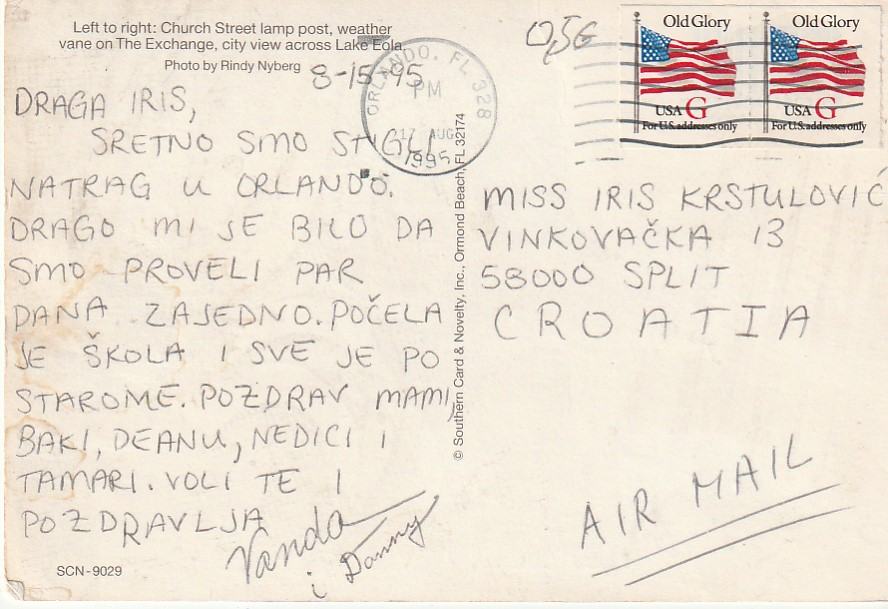 Left to right: Church Street lamp post, weather
vane on The Exchange, city view across Lake Eola.
Photo by Rindy Nyberg
8-15-95
DRAGA IRIS,
SRETNO SMO STIGLI
NATRAG U ORLANDO.
DRAGO MI JE BILO DA
SMO PROVELI PAR
DANA ZAJEDNO. POČELA
JE ŠKOLA I SVE JE PO
STAROME. POZDRAV MAMI,
BAKI, DEANU, NEDICI I
TAMARI. VOLI TE I
POZDRAVLJA
Vanda
i Danny
SCN-9029
© Southern Card & Novelty, Inc., Ormond Beach, FL 32174
ORLANDO, FL 328
PM
17 AUG
1995
0,56
Old Glory
USA G
For U.S. addresses only
Old Glory
USA G
For U.S. addresses only
MISS IRIS KRSTULOVIĆ
VINKOVAČKA 13
58000 SPLIT
CROATIA
AIR MAIL